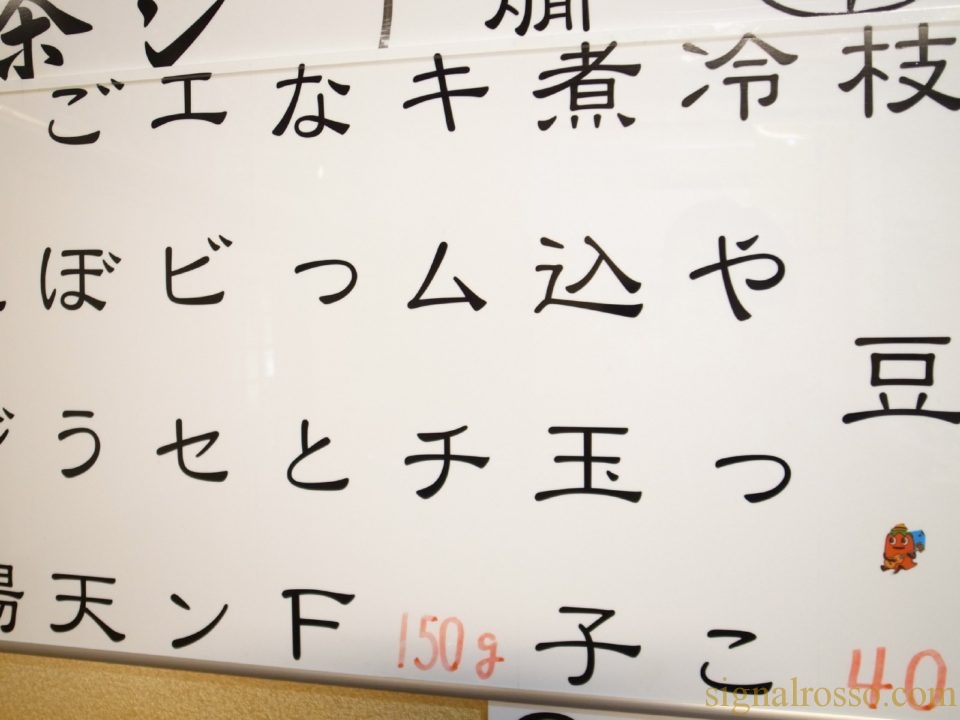 枝豆 40
冷やっこ
煮込玉子
キムチ 150g
なっとF
エビセン
ごぼう天
signalrosso.com